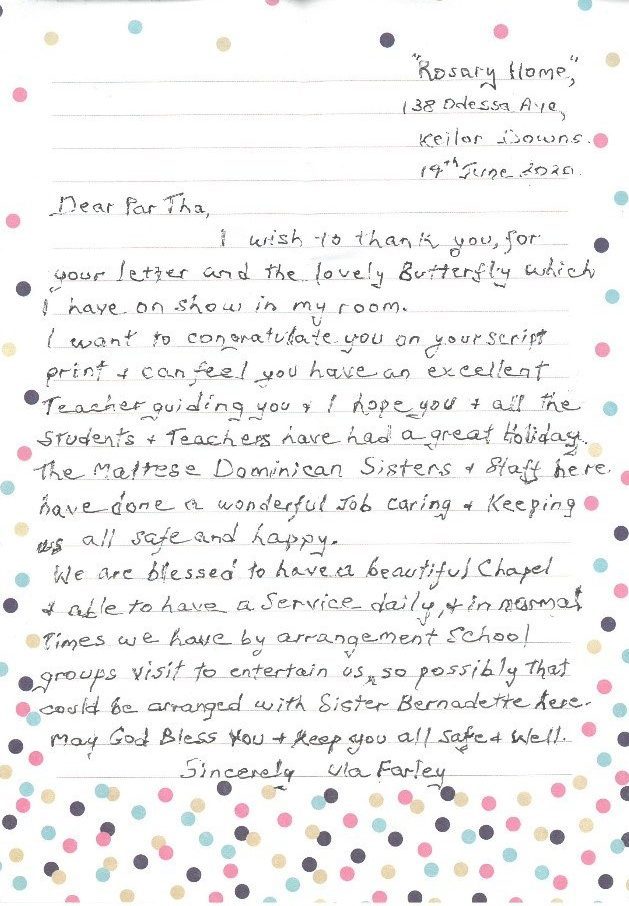 "Rosary Home",
138 Odessa Ave,
Keilor Downs.
19th June 2020.
Dear Par Tha,
I wish to thank you, for
your letter and the lovely Butterfly which
I have on show in my room.
I want to congratulate you on your script
print + can feel you have an excellent
Teacher guiding you + I hope you + all the
Students + Teachers have had a great holiday.
The Maltese Dominican Sisters + Staff here.
have done a wonderful Job caring + Keeping
us all safe and happy.
We are blessed to have a beautiful Chapel
+ able to have a Service daily, + in normal
Times we have by arrangement School
groups visit to entertain us, so possibly that
could be arranged with Sister Bernadette here.
May God Bless You + Keep you all safe + well.
Sincerely Farley